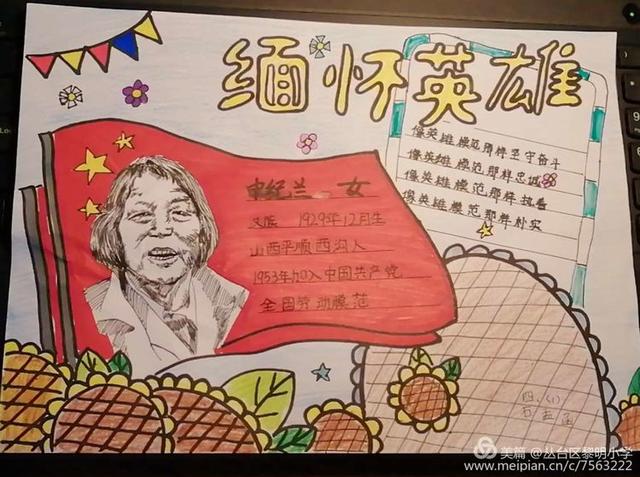 缅怀英雄
像英雄模范那样坚守奋斗
像英雄模范那样忠诚
像英雄模范那样执着
像英雄模范那样朴实
申纪兰 女
汉族 1929年12月生
山西平顺西沟人
1953年加入中国共产党
全国劳动模范
四、(1)
美篇 @丛台区黎明小学
www.meipian.cn/c/7563222